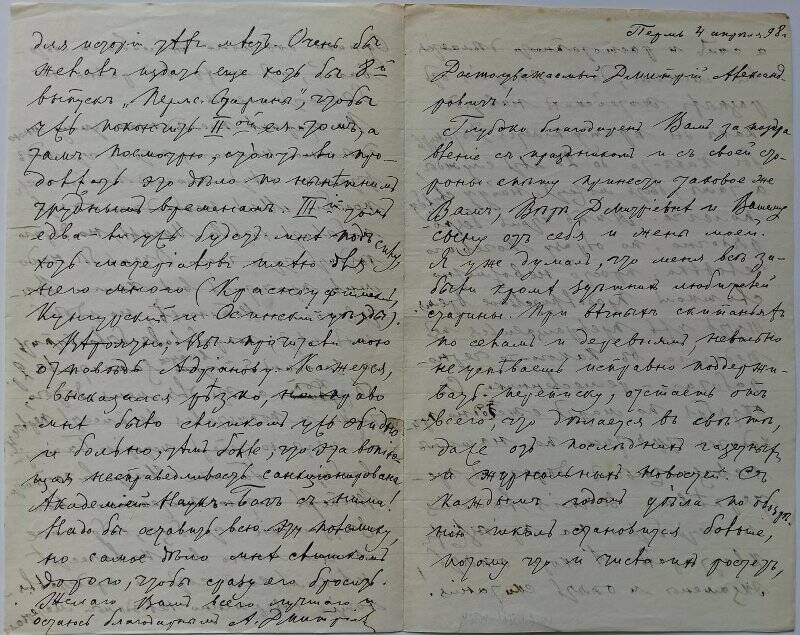 для исторiи здѣш. мѣстъ. Очень бы
желалъ издать еще хоть бы 8й
выпускъ „Перм. Старины", чтобы
ужъ покончить II ой ея томъ, а
тамъ посмотрю, стоитъ ли про-
должать это дѣло по нынѣшнимъ
труднымъ временамъ. III й томъ
едва-ли ужъ будетъ мнѣ подъ силу,
хоть матерiаловъ имѣю для
него много (Красноуфимскiй,
Кунгурскiй и Осинскiй уѣзды).
Вѣроятно, Вы прочитали мою
отповѣдь Адрiанову. Кажется,
высказался рѣзко, но право
мнѣ было слишкомъ ужъ обидно
и больно, тѣмъ болѣе, что эта вопiю-
щая несправедливость санкцiонирована
Академiей Наукъ. Богъ съ ними!
Надо бы оставить всю эту полемику,
но самое дѣло мнѣ слишкомъ
дорого, чтобы сразу его бросить.
Желаю Вамъ всего лучшаго и
остаюсь благодарнымъ А. Дмитрiевъ
Пермь 4 апрѣля 98 г.
Достоуважаемый Дмитрiй Александ-
ровичъ!
Глубоко благодаренъ Вамъ за поздра-
вленiе съ праздникомъ и съ своей сто-
роны спѣшу принести таковое же
Вамъ, Вѣрѣ Дмитрiевнѣ и Вашему
сыну отъ себя и жены моей.
Я уже думалъ, что меня всѣ за-
были кромѣ здѣшнихъ любителей
старины. При вѣчныхъ скитанiяхъ
по селамъ и деревнямъ, невольно
не успѣваешь исправно поддержи-
вать переписку, отстаешь отъ
всего, что дѣлается въ свѣтѣ,
даже отъ послѣднихъ газетныхъ
и журнальныхъ новостей. Съ
каждымъ годомъ дѣла по обозрѣ-
нiю школъ становится больше,
потому что и число ихъ растетъ,